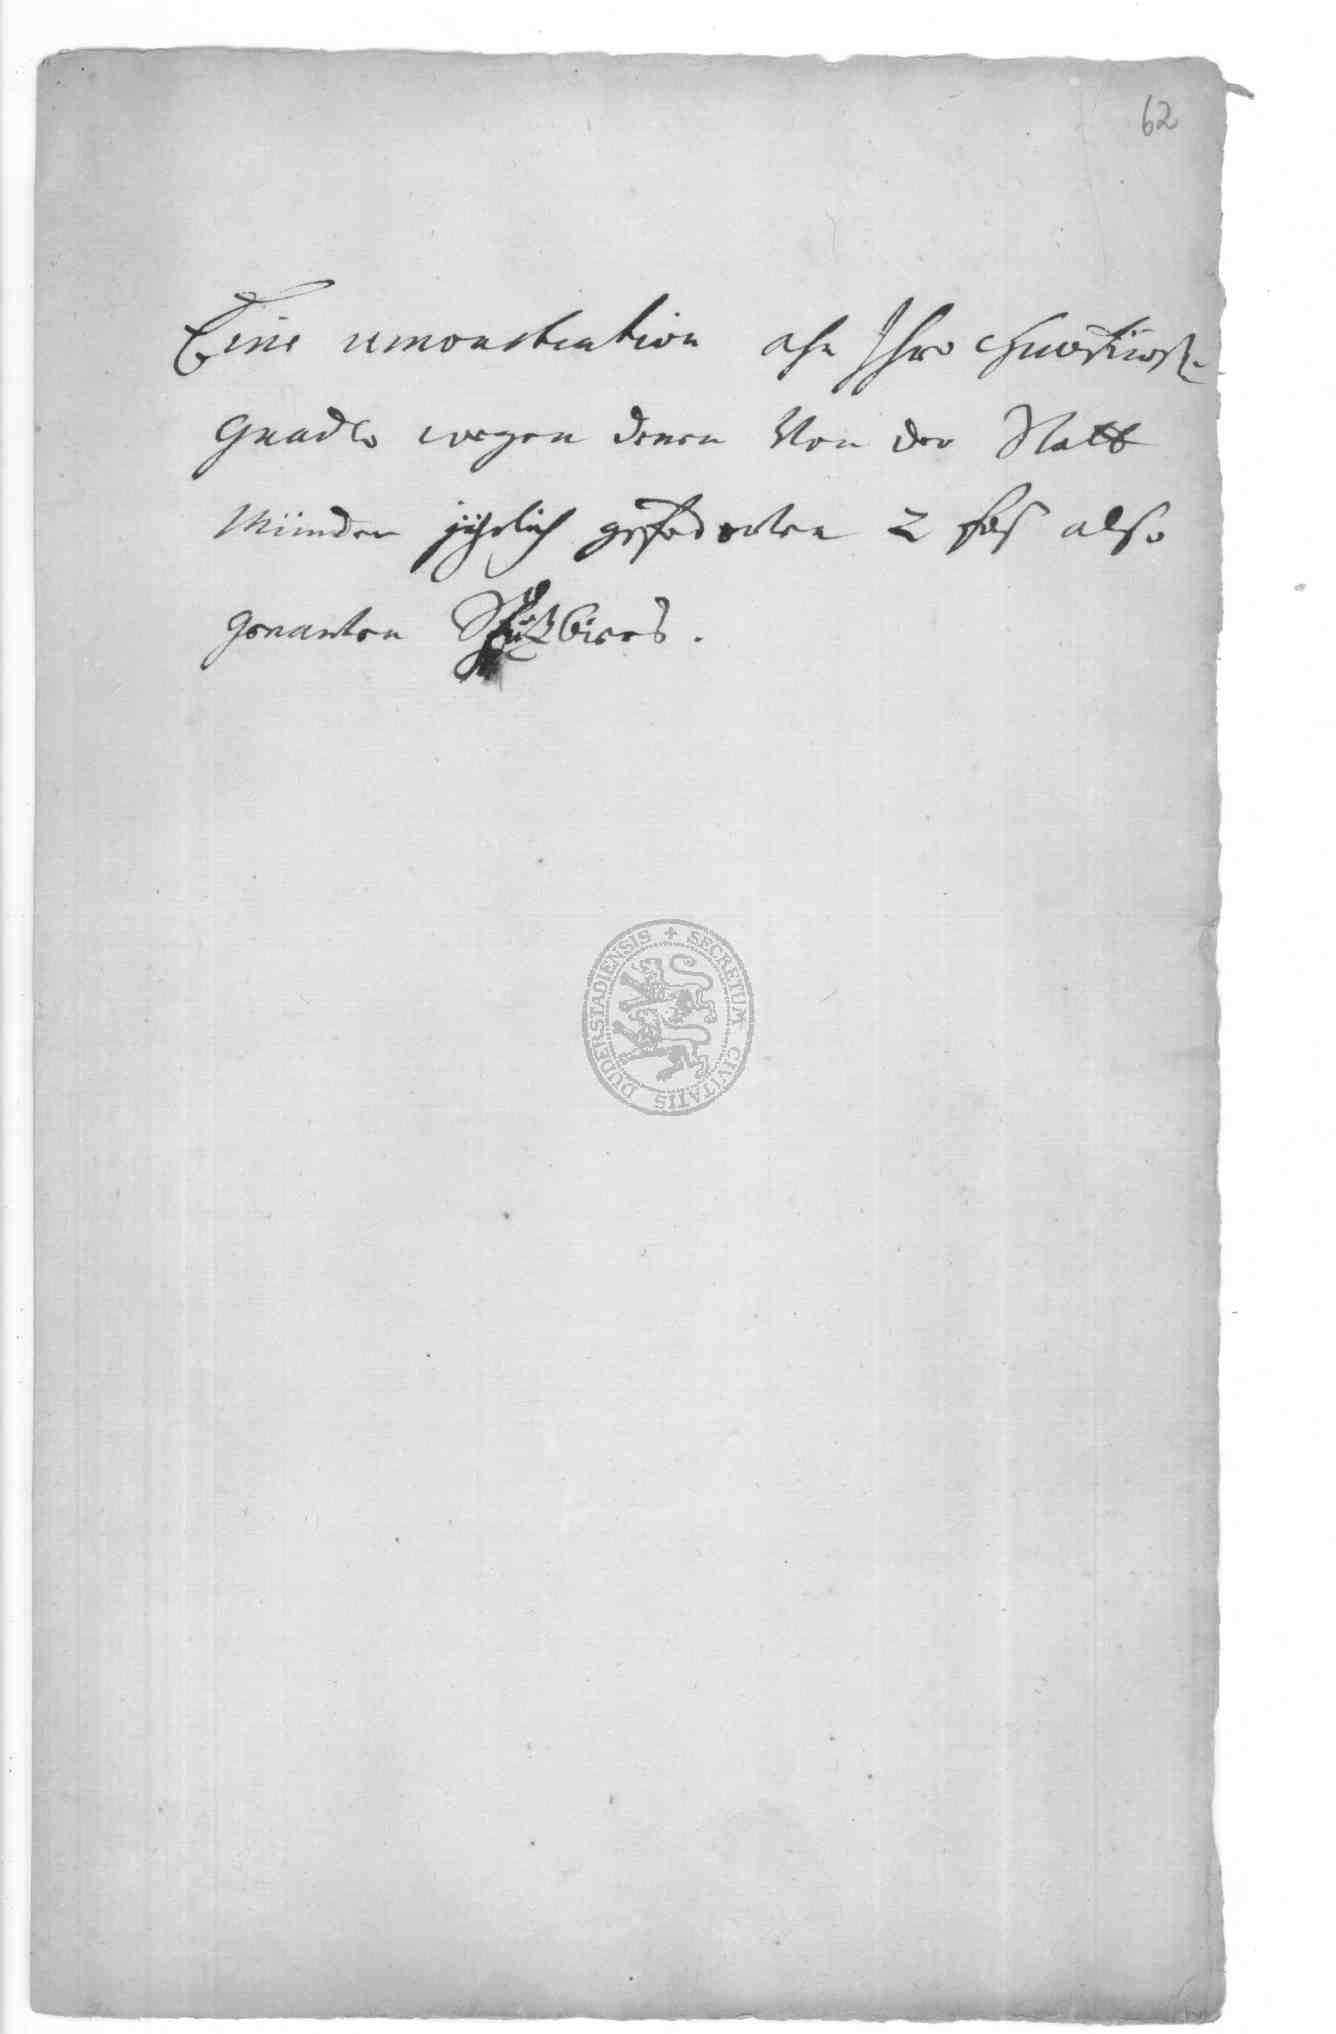 62
Eine remonstration ahn Ihro Churfürstl.
Gnadn wegen denen Von der Statt
Münden jährlich gefoderten 2 fas also
genanten Schutzbiers.
SECRETUM CIVITATIS DUDERSTADIENSIS